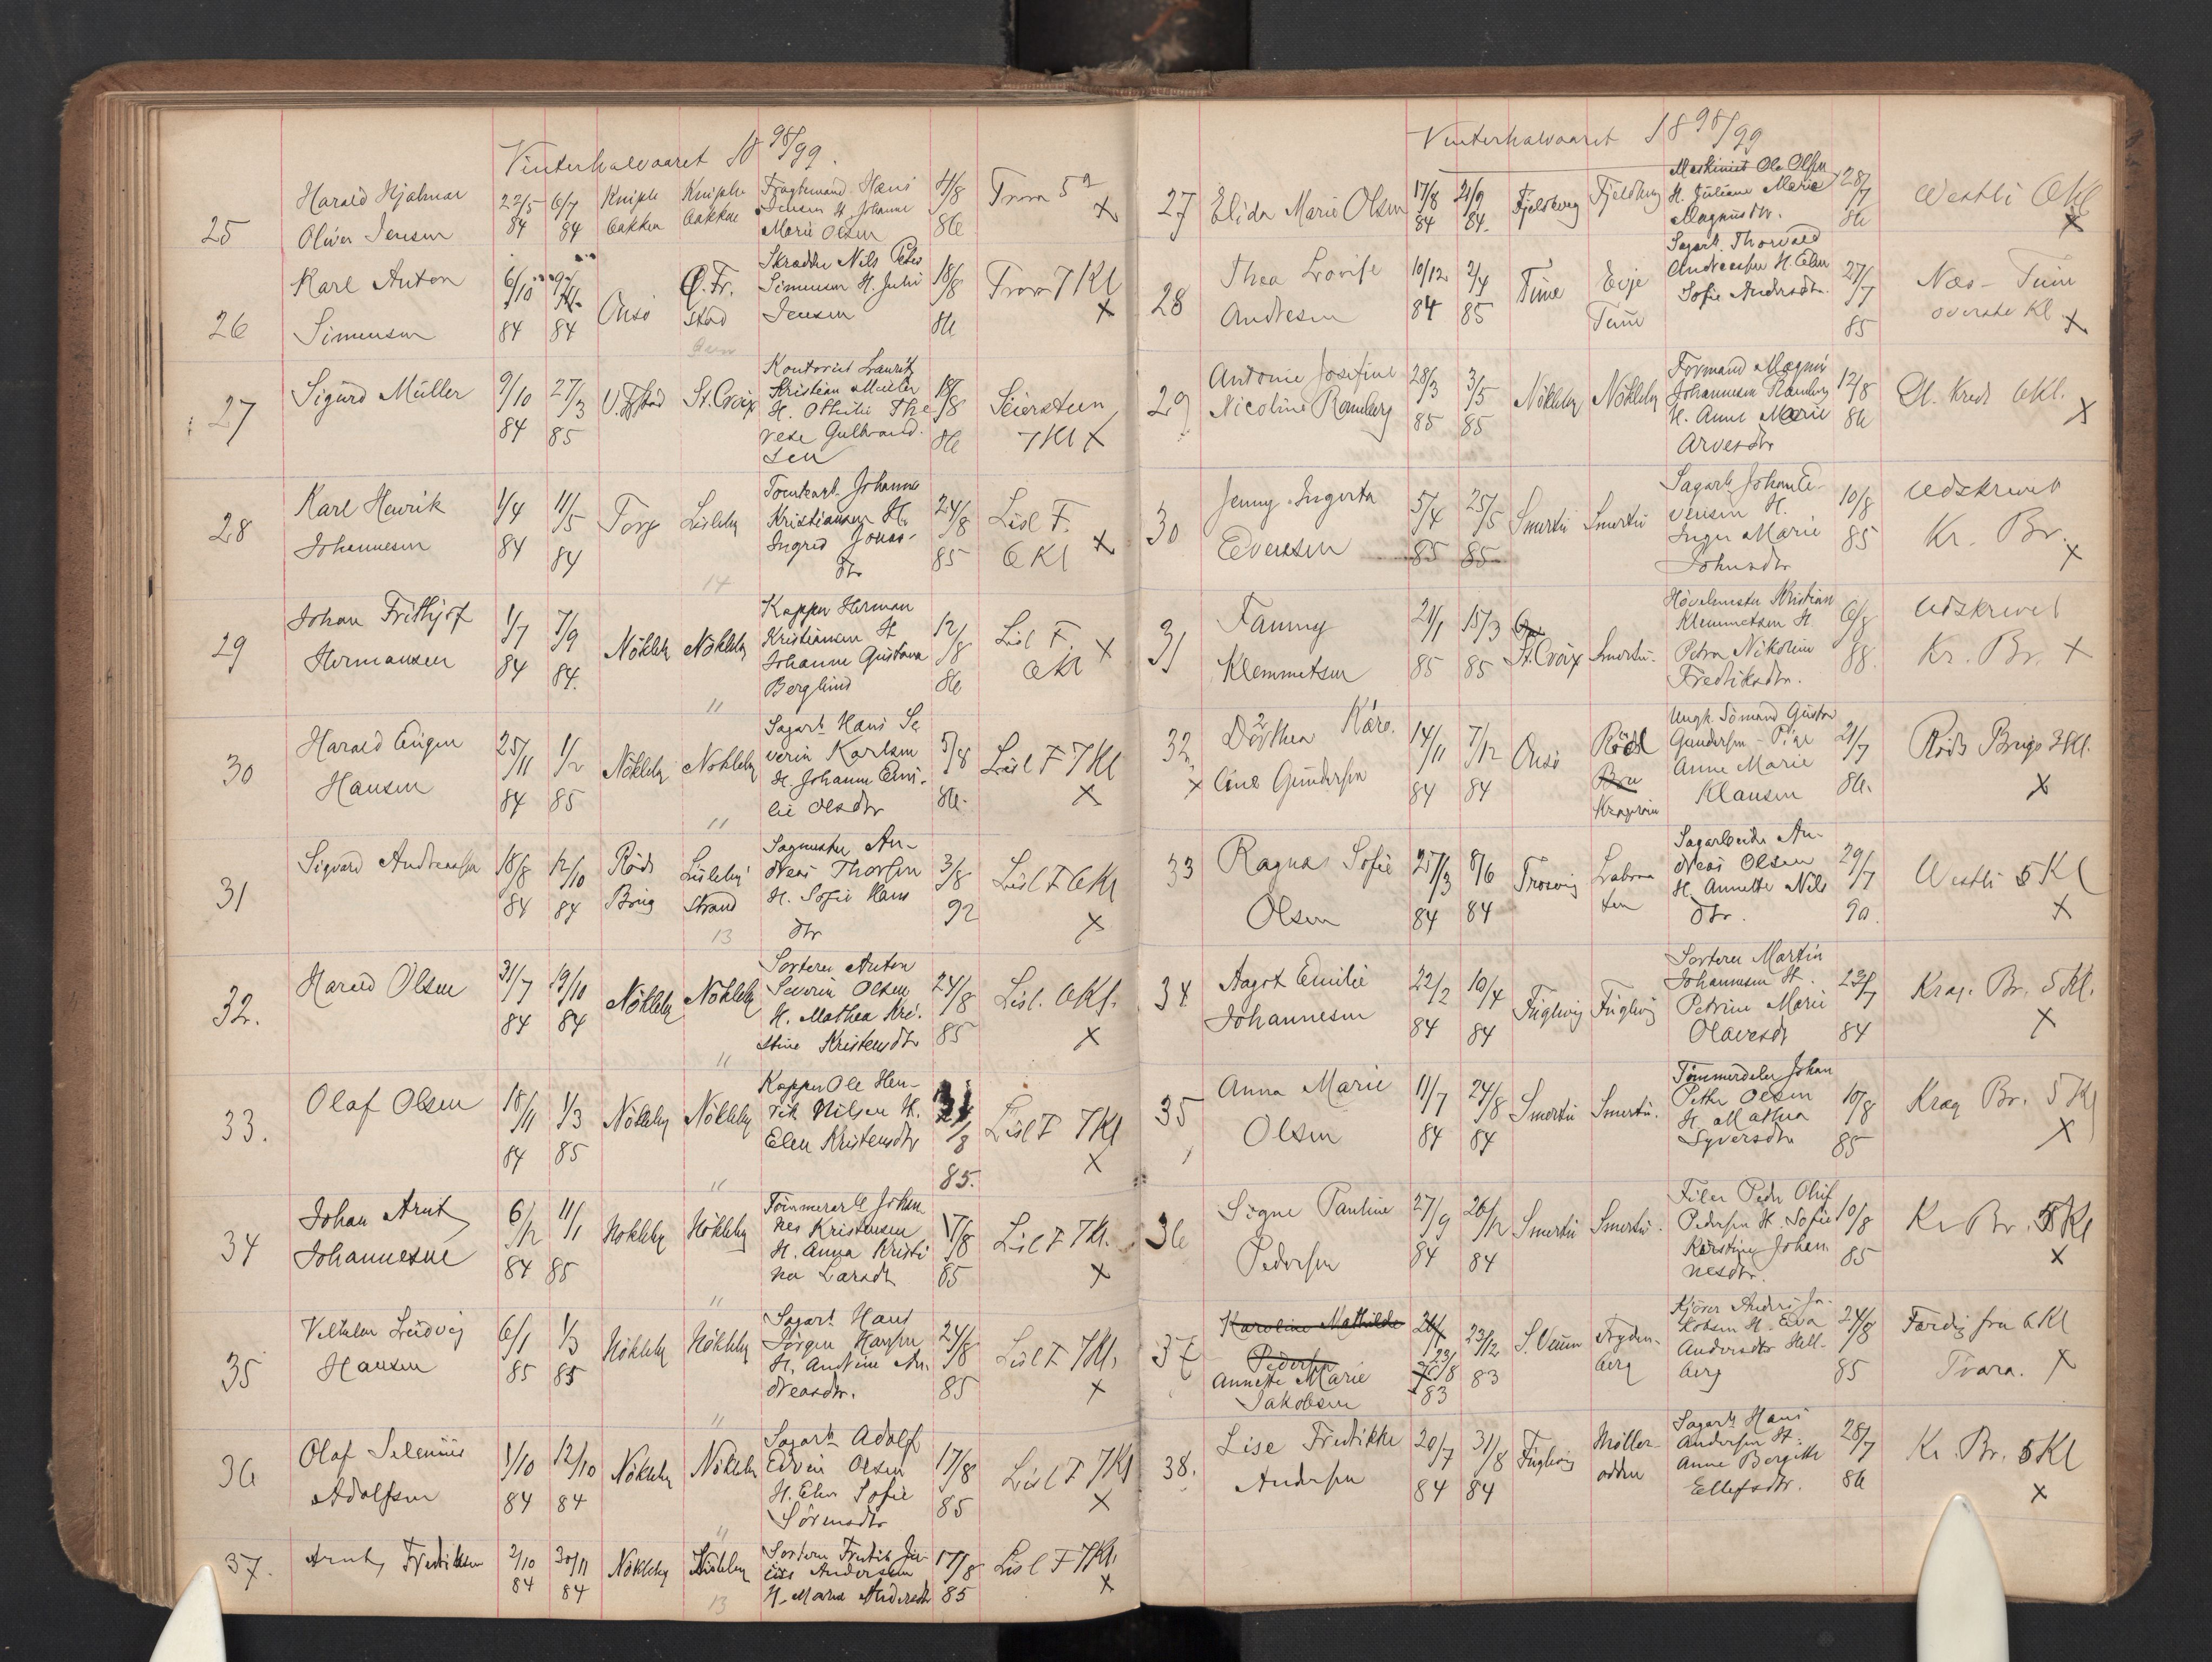 Vinterhalvaaret 18 98/99.
25 Harald Hjalmar Oliver Jensen 22/5 84 6/7 84 Kniple bakken Kniple bakken Fragtemand Hans Jensen H. Johanne Marie Olsen 4/8 86 Trara 5 X
26 Karl Anton Simensen 6/10 84 84 Onsö Ö. Fr. stad Skrædder Nils Peter Simensen H. Julie Jensen 18/8 86 Trara 7 Kl X
27 Sigurd Müller 9/10 84 27/3 85 V. Fstad St. Croix Kontorist Lauritz Kristian Müller H. Othilie The rese Gulbrand sen 18/8 86 Seiersteen 7 Kl X
28 Karl Henrik Johannesen 1/4 84 11/5 84 Torp Lisleby Tomtearb. Johannes Kristiansen H. Ingred Jonas- dtr 24/8 85 Lisl F. 6 Kl X
14
29 Johan Frithjof Hermansen 1/7 84 7/9 84. Nökleby Nökleby Kopper Herman Kristiansen H Johanne Gustava Berglund 12/8 86 Lisl F. 6 Kl X
"
30 Harald Eugen Hansen 25/11 84 1/2 85 Nökleby Nökleby Sagarb. Hans Se verin Karlsen H. Johanne Emi- lie Olsdtr 5/8 86. Lisl F 7 Kl X
"
31 Sigvard Andreassen 18/8 84 12/10 84 Röds Brug Lisleby Strand Sagmester An- dreas Thorsen H. Sofie Hans dtr 3/8 92 Lisl F 6 Kl X
13
32. Harald Olsen 31/7 84 19/10 84 Nökleby Nökleby Sorterer Anton Severin Olsen H. Mathea Kri. stine Kristensdtr 24/8 85 Lisl. 6 Kl. X
"
33. Olaf Olsen 18/11 84 1/3 85 Nökleby Nökleby Kopper Ole Hen- rik Nilsen H. Elen Kristensdtr /8 85. Lisl F 7 Kl X
"
34 Johan Arnt Johannesen 6/12 84 11/1 85 Nokleby Nökleby Tömmerarb Johan nes Kristensen H. Anna Kristi na Larsdtr 17/8 85 Lisl F 7 Kl. X
"
35 Vilhelm Ludvig Hansen 6/1 85 1/3 85 Nökleby Nökleby Sagarb Hans Jörgen Hansen H. Andrine An. dreasdtr. 24/8 85 Lisl F 7 Kl. X
"
36 Olaf Selenius Adolfsen 1/10 84 12/10 84 Nökleby Nökleby Sagarb Adolf Edvin Olsen H. Elen Sofie Sörensdtr 17/8 85 Lisl F 7 Kl X
"
37. Arnt Fredriksen 2/10 84 30/11 84 Nökleby Lisleby Sorterer Fredrik Ju- lius Andersen H. Maren Andersdtr 17/8 85 Lisl F 7 Kl. X
13
Vinterhalvaaret 18 98/99
27 Elida Marie Olsen 17/8 84 21/9 84. Fjeldberg Fjeldberg Maskinist Ole Olsen H. Juliane Marie Magnusdtr. 28/7 86 Westli 6 Kl X
28 Thea Lovise Andresen 10/12 84 2/4 85 Tune Evje Tune Sagarb. Thorvald Andreassen H. Elen Sofie Andersdtr. 27/7 85 Næs - Tune overste Kl. X
29 Antonie Josefine Nicoline Ramberg 28/3 85 3/5 85 Nökleby Nökleby Formand Magnus Johannesen Ramberg H. Anne Marie Arvesdtr 12/8 86 Gl. Kreds 6 Kl. X
30 Jenny Ingerta Evensen 5/4 85 25/5 85 Smertu Smertu Sagarb Johan E- vensen H. Inger Marie Johnsdtr 10/8 85 Udskrevet Kr. Br. X
31 Fanny Klemmetsen 21/1 85 15/3 85 St. Croix Smertu. Hövlemester Kristian Klemmetsen H Petra Nikoline Fredriksdtr. 6/8 88. Udskrevet Kr. Br. X
32. X Dorthea Karo. line Gundersen 14/11 84 7/12 84 Onsö Röds Bru Kragerøen Ungk. Sömand Gustav Gundersen - Pige Anne Marie Klausen 21/7 86. Röds Brugs 7 Kl. X
33 Ragna Sofie Olsen 25/3 84 8/6 84 Trosvig Labraa ten Sagarbeider An- dreas Olsen H. Annette Nils dtr. 29/7 90. Westli 5 Kl X
34. Aagot Emilie Johannesen 22/2 84 10/4 84 Fuglevig Fuglevig Sorterer Martin Johannesen H. Petrine Marie Olavesdtr 23/7 84 Krag. Br. 5 Kl. X
35 Anna Marie Olsen 11/7 84 24/8 84 Smertu Smertu. Tömmerdeler Johan Petter Olsen H. Mathea Syversdtr 10/8 85 Krag Br. 5 Kl X
36 Signe Pauline Pedersen 27/9 84 26/12 84 Smertu Smertu. Filer Peder Oluf Pedersen H. Sofie Karstine Johan. nesdtr. 10/8 85 Kr Br. 5 Kl X
37 Karoline Mathilde Pedersen Annette Marie Jakobsen 23/8 83 23/12 83 S. Veum Fryden- berg Kjörer Anders Ja- kobsen H. Eva Andersdtr Hell- berg 24/8 85 Færdig fra 6 Kl Trara. X
38. Lise Fredrikke Andersen 20/7 84 31/8 84 Fuglevig Möller- odden Sagarb Hans Andersen H. Anne Bergitte Ellefsdtr. 28/7 86 Kr. Br. 5 Kl X